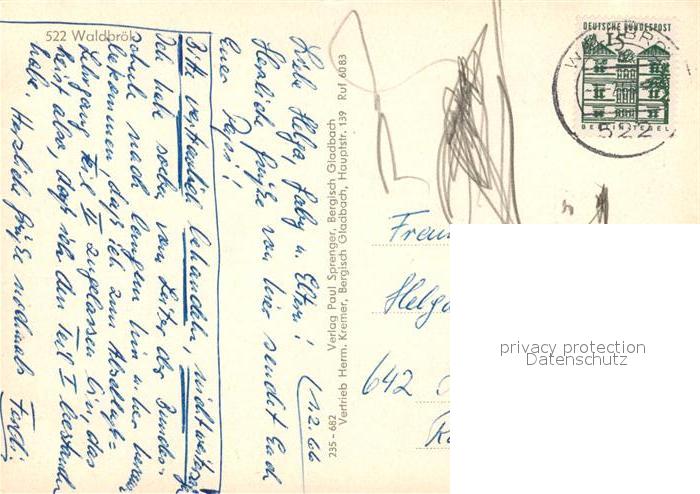 522 Waldbröl
1.2.66
Liebe Helga, Gaby u. Eltern!
Herzliche Grüße von hier sendet Euch
Euer Papi!
Bitte vertraulich behandeln, nicht
Ich habe soeben vom Leiter der Bundes-
schule nach langem hin u. her
bekommen, daß ich zum
Lehrgang Teil II zugelassen bin, das
heist also, daß ich den Teil I bestanden
habe. Herzliche Grüße nochmals
Verlag Paul Sprenger, Bergisch Gladbach
Vertrieb Herm. Kremer, Bergisch Gladbach, Hauptstr. 139 Ruf 6083
235 - 682
DEUTSCHE BUNDESPOST
15
BERLIN-TEGEL
522
Helga
642
privacy protection
Datenschutz